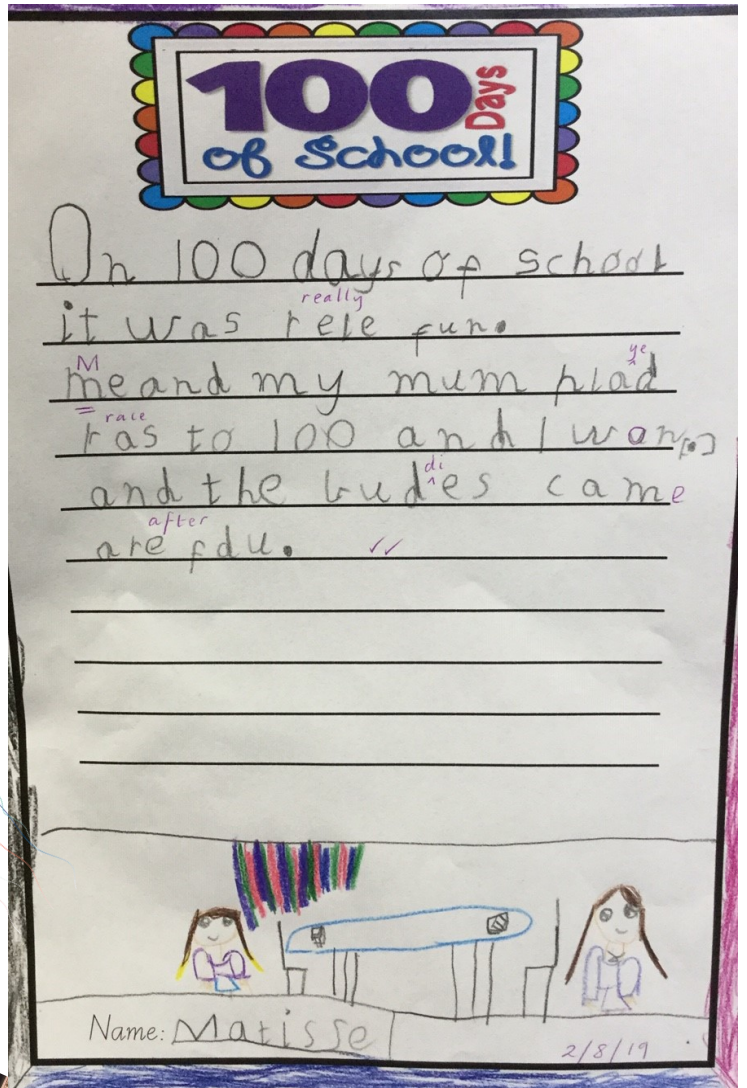 100 Days
of School!
On 100 days of school
really
it was rele fun.
M ye
me and my mum plad
race
ras to 100 and I wan[.]
di
and the budes came
after
are fdu.
Name: Matisse
2/8/19